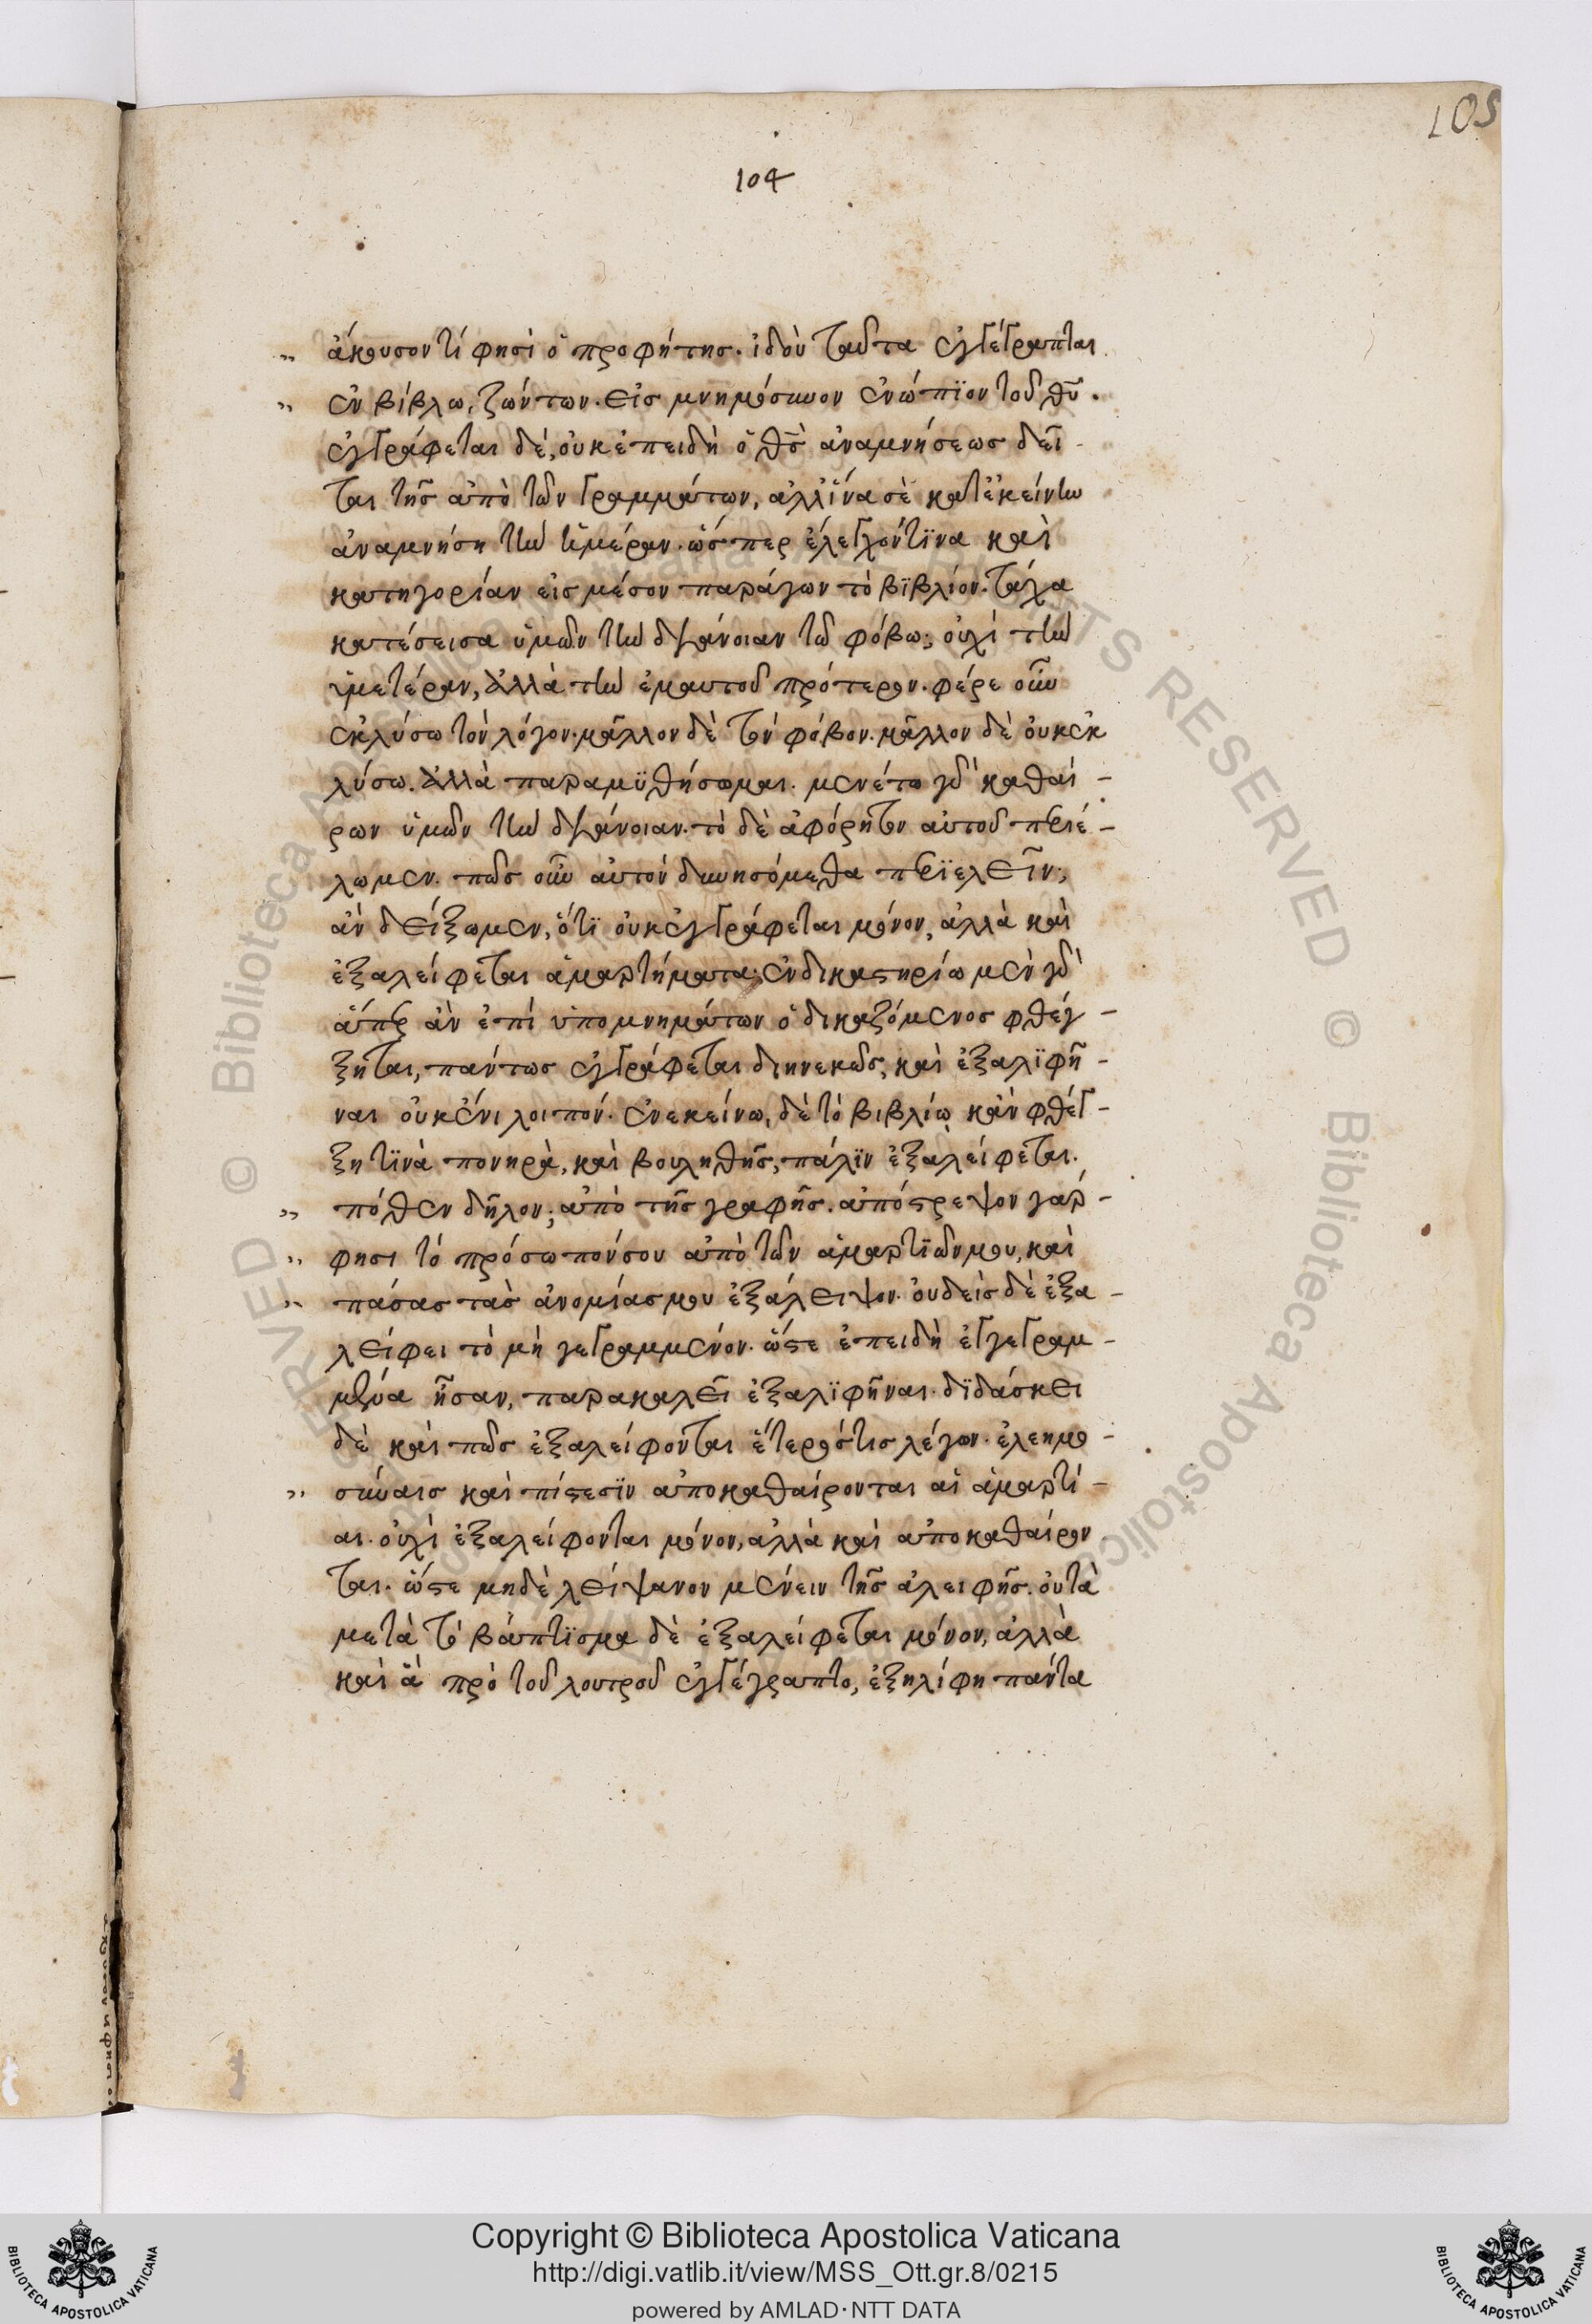 105
104
ἄκουσον τί φησὶ ὁ προφήτης. ἰδοὺ ταῦτα ἐγγέγραπται
ἐν βίβλω, ζώντων. εἰς μνημόσυνον ἐνώπϊον τοῦ θῦ.
ἐγγράφεται δὲ, οὐκ ἐπειδὴ ὁ θς ἀναμνήσεως δεῖ-
ται τῆς ἀπὸ τῶν γραμμάτων, ἀλλ' ἵνα σὲ κατ' ἐκείνην
ἀναμνήση τὴν ἡμέραν. ὥσπερ ἔλεγχόν τϊνα καὶ
κατηγορίαν εἰς μέσον παράγων τὸ βϊβλίον. τάχα
κατέσεισα ὑμῶν τὴν διάνοιαν τῶ φόβω; οὐχὶ τὴν
ὑμετέραν, ἀλλὰ τὴν ἐμαυτοῦ πρότερον. φέρε οὖν
ἐκλύσω τὸν λόγον. μᾶλλον δὲ τὸν φόβον. μᾶλλον δὲ οὐκ ἐκ
λύσω. ἀλλὰ παραμϋθήσωμαι. μενέτω γὰρ καθαί-
ρων ὑμῶν τὴν διάνοιαν. τὸ δὲ ἀφόρητον αὐτοῦ περιέ-
λωμεν. πῶς οὖν αὐτὸν δυνησόμεθα περϊελεῖν;
ἂν δείξωμεν, ὅτϊ οὐκ ἐγγράφεται μόνον, ἀλλὰ καὶ
ἐξαλείφεται ἁμαρτήματα; ἐν δικαστηρίω μὲν γὰρ
ἅπερ ἂν ἐπὶ ὑπομνημάτων ὁ δικαζόμενος φθέγ-
ξηται, πάντως ἐγγράφεται διηνεκῶς, καὶ ἐξαλϊφῆ-
ναι οὐκ ἔνι λοιπόν. ἐν ἐκείνω, δὲ τὸ βιβλίω κἂν φθέγ-
ξη τϊνὰ πονηρὰ, καὶ βουληθῆς, πάλϊν ἐξαλείφεται.
πόθεν δῆλον; ἀπὸ τῆς γραφῆς. ἀπόστρεψον γὰρ-
φησι τὸ πρόσωπόν σου ἀπὸ τῶν ἁμαρτϊῶν μου, καὶ
πάσας τὰς ἀνομίας μου ἐξάλειψον. οὐδεὶς δὲ ἐξα-
λείφει τὸ μὴ γεγραμμένον. ὥστε ἐπειδὴ ἐγγεγραμ-
μένα ἦσαν, παρακαλεῖ ἐξαλϊφῆναι. δϊδάσκει
δὲ καὶ πῶς ἐξαλείφονται ἕτερός τις λέγων. ἐλεημο-
σύναις καὶ πίστεσϊν ἀποκαθαίρονται αἱ ἁμαρτί-
αι. οὐχὶ ἐξαλείφονται μόνον, ἀλλὰ καὶ ἀποκαθαίρον
ται. ὥστε μηδὲ λείψανον μένειν τῆς ἀλειφῆς. οὐ τὰ
μετὰ τὸ βάπτϊσμα δὲ ἐξαλείφεται μόνον, ἀλλὰ
καὶ ἃ πρὸ τοῦ λουτροῦ ἐγγέγραπτο, ἐξηλίφη πάντα
Copyright © Biblioteca Apostolica Vaticana
http://digi.vatlib.it/view/MSS_Ott.gr.8/0215
powered by AMLAD·NTT DATA